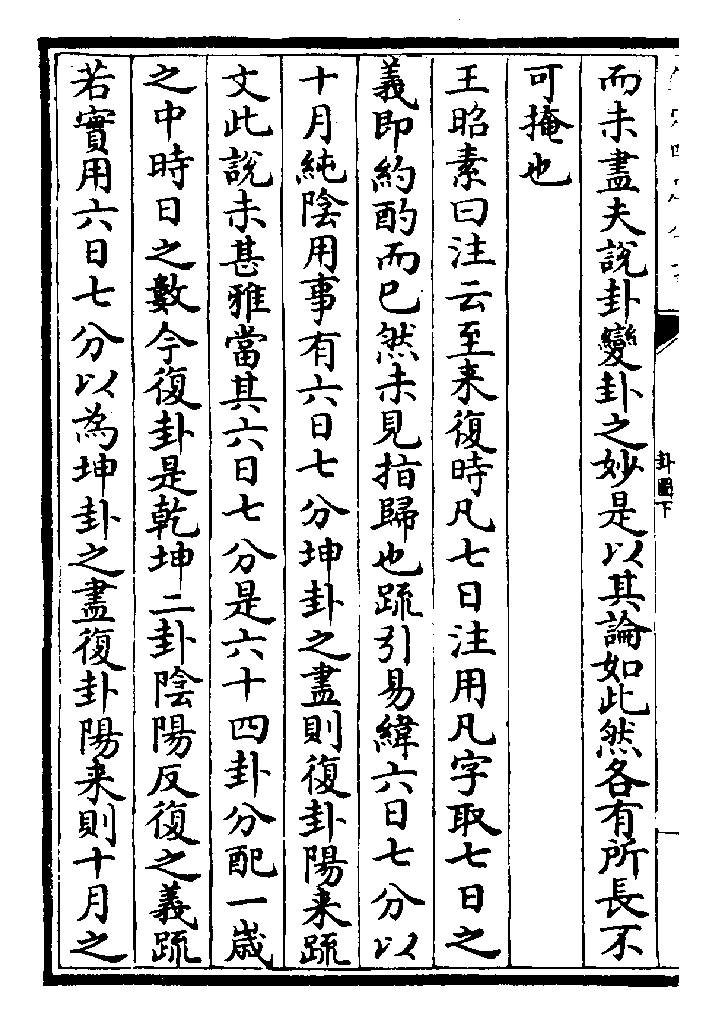 而未盡夫說卦變卦之妙是以其論如此然各有所長不
可掩也
王昭素曰注云至来復時凡七日注用凡字取七日之
義即約酌而已然未見指歸也疏引易緯六日七分以
十月純陰用事有六日七分坤卦之盡則復卦陽来疏
文此說未甚雅當其六日七分是六十四卦分配一歲
之中時日之數今復卦是乾坤二卦陰陽反復之義疏
若實用六日七分以為坤卦之盡復卦陽来則十月之
卦圖下